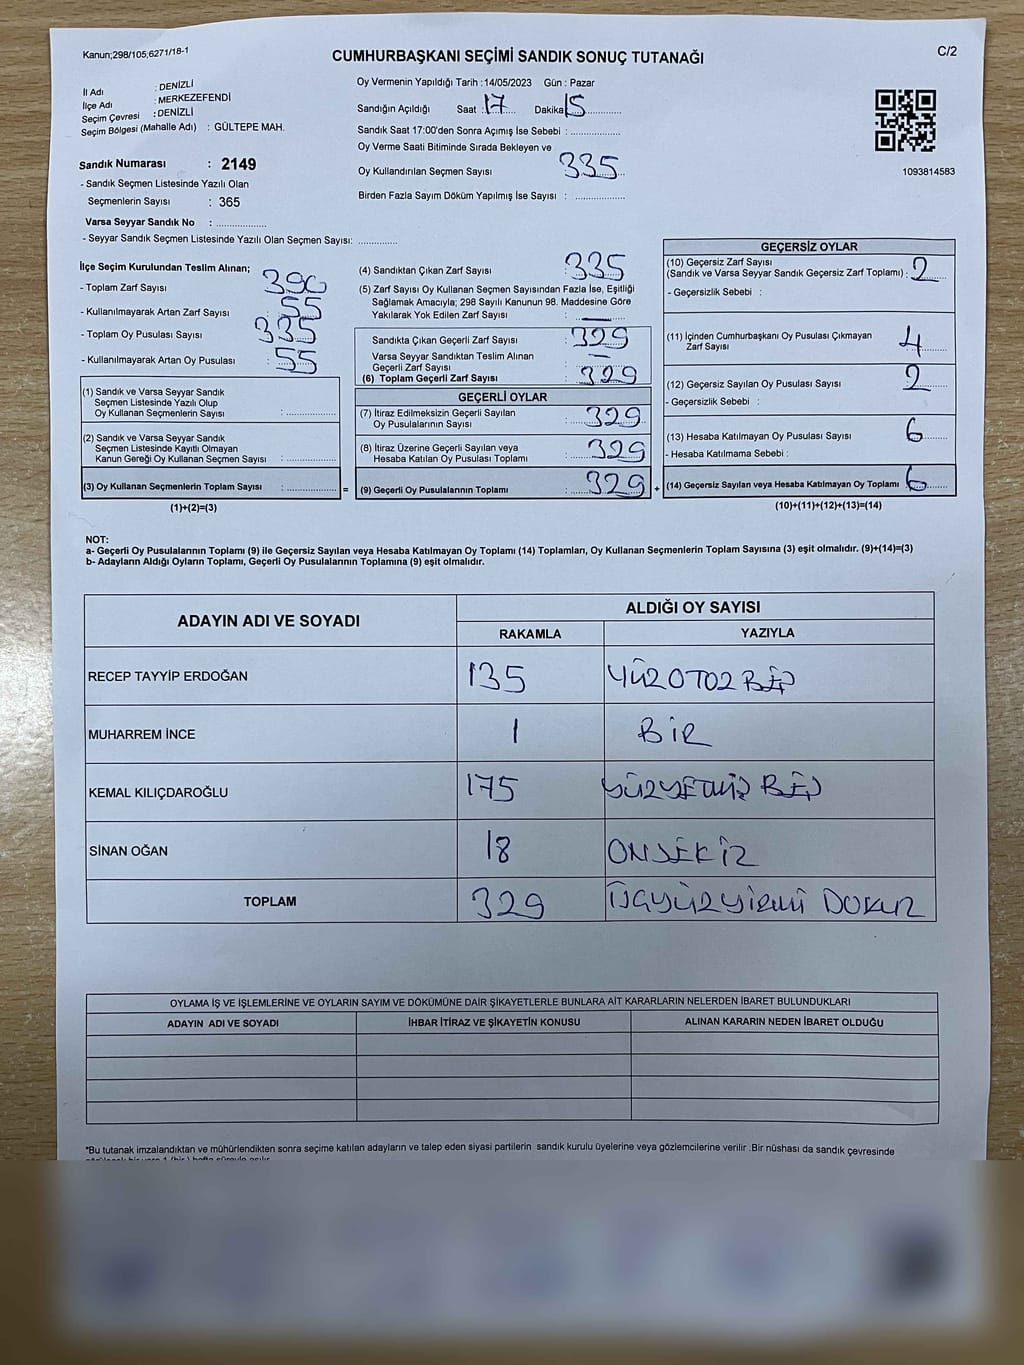 Kanun;298/105;6271/18-1
CUMHURBAŞKANI SEÇİMİ SANDIK SONUÇ TUTANAĞI
C/2
İl Adı : DENİZLİ
İlçe Adı : MERKEZEFENDİ
Seçim Çevresi : DENİZLİ
Seçim Bölgesi (Mahalle Adı) : GÜLTEPE MAH.
Sandık Numarası : 2149
- Sandık Seçmen Listesinde Yazılı Olan
Seçmenlerin Sayısı : 365
Varsa Seyyar Sandık No : ..................
- Seyyar Sandık Seçmen Listesinde Yazılı Olan Seçmen Sayısı: ..............
Oy Vermenin Yapıldığı Tarih : 14/05/2023 Gün : Pazar
Sandığın Açıldığı Saat : 17 Dakika 15
Sandık Saat 17:00'den Sonra Açımış İse Sebebi : ..................
Oy Verme Saati Bitiminde Sırada Bekleyen ve
Oy Kullandırılan Seçmen Sayısı 335
Birden Fazla Sayım Döküm Yapılmış İse Sayısı : ..................
1093814583
İlçe Seçim Kurulundan Teslim Alınan;
- Toplam Zarf Sayısı 390
- Kullanılmayarak Artan Zarf Sayısı : 55
- Toplam Oy Pusulası Sayısı 335
- Kullanılmayarak Artan Oy Pusulası : 55
(1) Sandık ve Varsa Seyyar Sandık
Seçmen Listesinde Yazılı Olup
Oy Kullanan Seçmenlerin Sayısı : ..................
(2) Sandık ve Varsa Seyyar Sandık
Seçmen Listesinde Kayıtlı Olmayan
Kanun Gereği Oy Kullanan Seçmen Sayısı : ..................
(3) Oy Kullanan Seçmenlerin Toplam Sayısı : .................. =
(1)+(2)=(3)
(4) Sandıktan Çıkan Zarf Sayısı : 335
(5) Zarf Sayısı Oy Kullanan Seçmen Sayısından Fazla İse, Eşitliği
Sağlamak Amacıyla; 298 Sayılı Kanunun 98. Maddesine Göre
Yakılarak Yok Edilen Zarf Sayısı : —
Sandıkta Çıkan Geçerli Zarf Sayısı : 329
Varsa Seyyar Sandıktan Teslim Alınan
Geçerli Zarf Sayısı : —
(6) Toplam Geçerli Zarf Sayısı : 329
GEÇERLİ OYLAR
(7) İtiraz Edilmeksizin Geçerli Sayılan
Oy Pusulalarının Sayısı : 329
(8) İtiraz Üzerine Geçerli Sayılan veya
Hesaba Katılan Oy Pusulası Toplamı : 329
(9) Geçerli Oy Pusulalarının Toplamı : 329 +
GEÇERSİZ OYLAR
(10) Geçersiz Zarf Sayısı
(Sandık ve Varsa Seyyar Sandık Geçersiz Zarf Toplamı) : 2
- Geçersizlik Sebebi :
(11) İçinden Cumhurbaşkanı Oy Pusulası Çıkmayan
Zarf Sayısı 4
(12) Geçersiz Sayılan Oy Pusulası Sayısı 2
- Geçersizlik Sebebi :
(13) Hesaba Katılmayan Oy Pusulası Sayısı 6
- Hesaba Katılmama Sebebi :
(14) Geçersiz Sayılan veya Hesaba Katılmayan Oy Toplamı 6
(10)+(11)+(12)+(13)=(14)
NOT:
a- Geçerli Oy Pusulalarının Toplamı (9) ile Geçersiz Sayılan veya Hesaba Katılmayan Oy Toplamı (14) Toplamları, Oy Kullanan Seçmenlerin Toplam Sayısına (3) eşit olmalıdır. (9)+(14)=(3)
b- Adayların Aldığı Oyların Toplamı, Geçerli Oy Pusulalarının Toplamına (9) eşit olmalıdır.
ADAYIN ADI VE SOYADI ALDIĞI OY SAYISI
RAKAMLA YAZIYLA
RECEP TAYYİP ERDOĞAN 135 YÜZOTOZ BEŞ
MUHARREM İNCE 1 BİR
KEMAL KILIÇDAROĞLU 175 YÜZYETMİŞ BEŞ
SİNAN OĞAN 18 ONSEKİZ
TOPLAM 329 ÜÇYÜZYİRMİ DOKUZ
OYLAMA İŞ VE İŞLEMLERİNE VE OYLARIN SAYIM VE DÖKÜMÜNE DAİR ŞİKAYETLERLE BUNLARA AİT KARARLARIN NELERDEN İBARET BULUNDUKLARI
ADAYIN ADI VE SOYADI İHBAR İTİRAZ VE ŞİKAYETİN KONUSU ALINAN KARARIN NEDEN İBARET OLDUĞU
*Bu tutanak imzalandıktan ve mühürlendikten sonra seçime katılan adayların ve talep eden siyasi partilerin sandık kurulu üyelerine veya gözlemcilerine verilir .Bir nüshası da sandık çevresinde